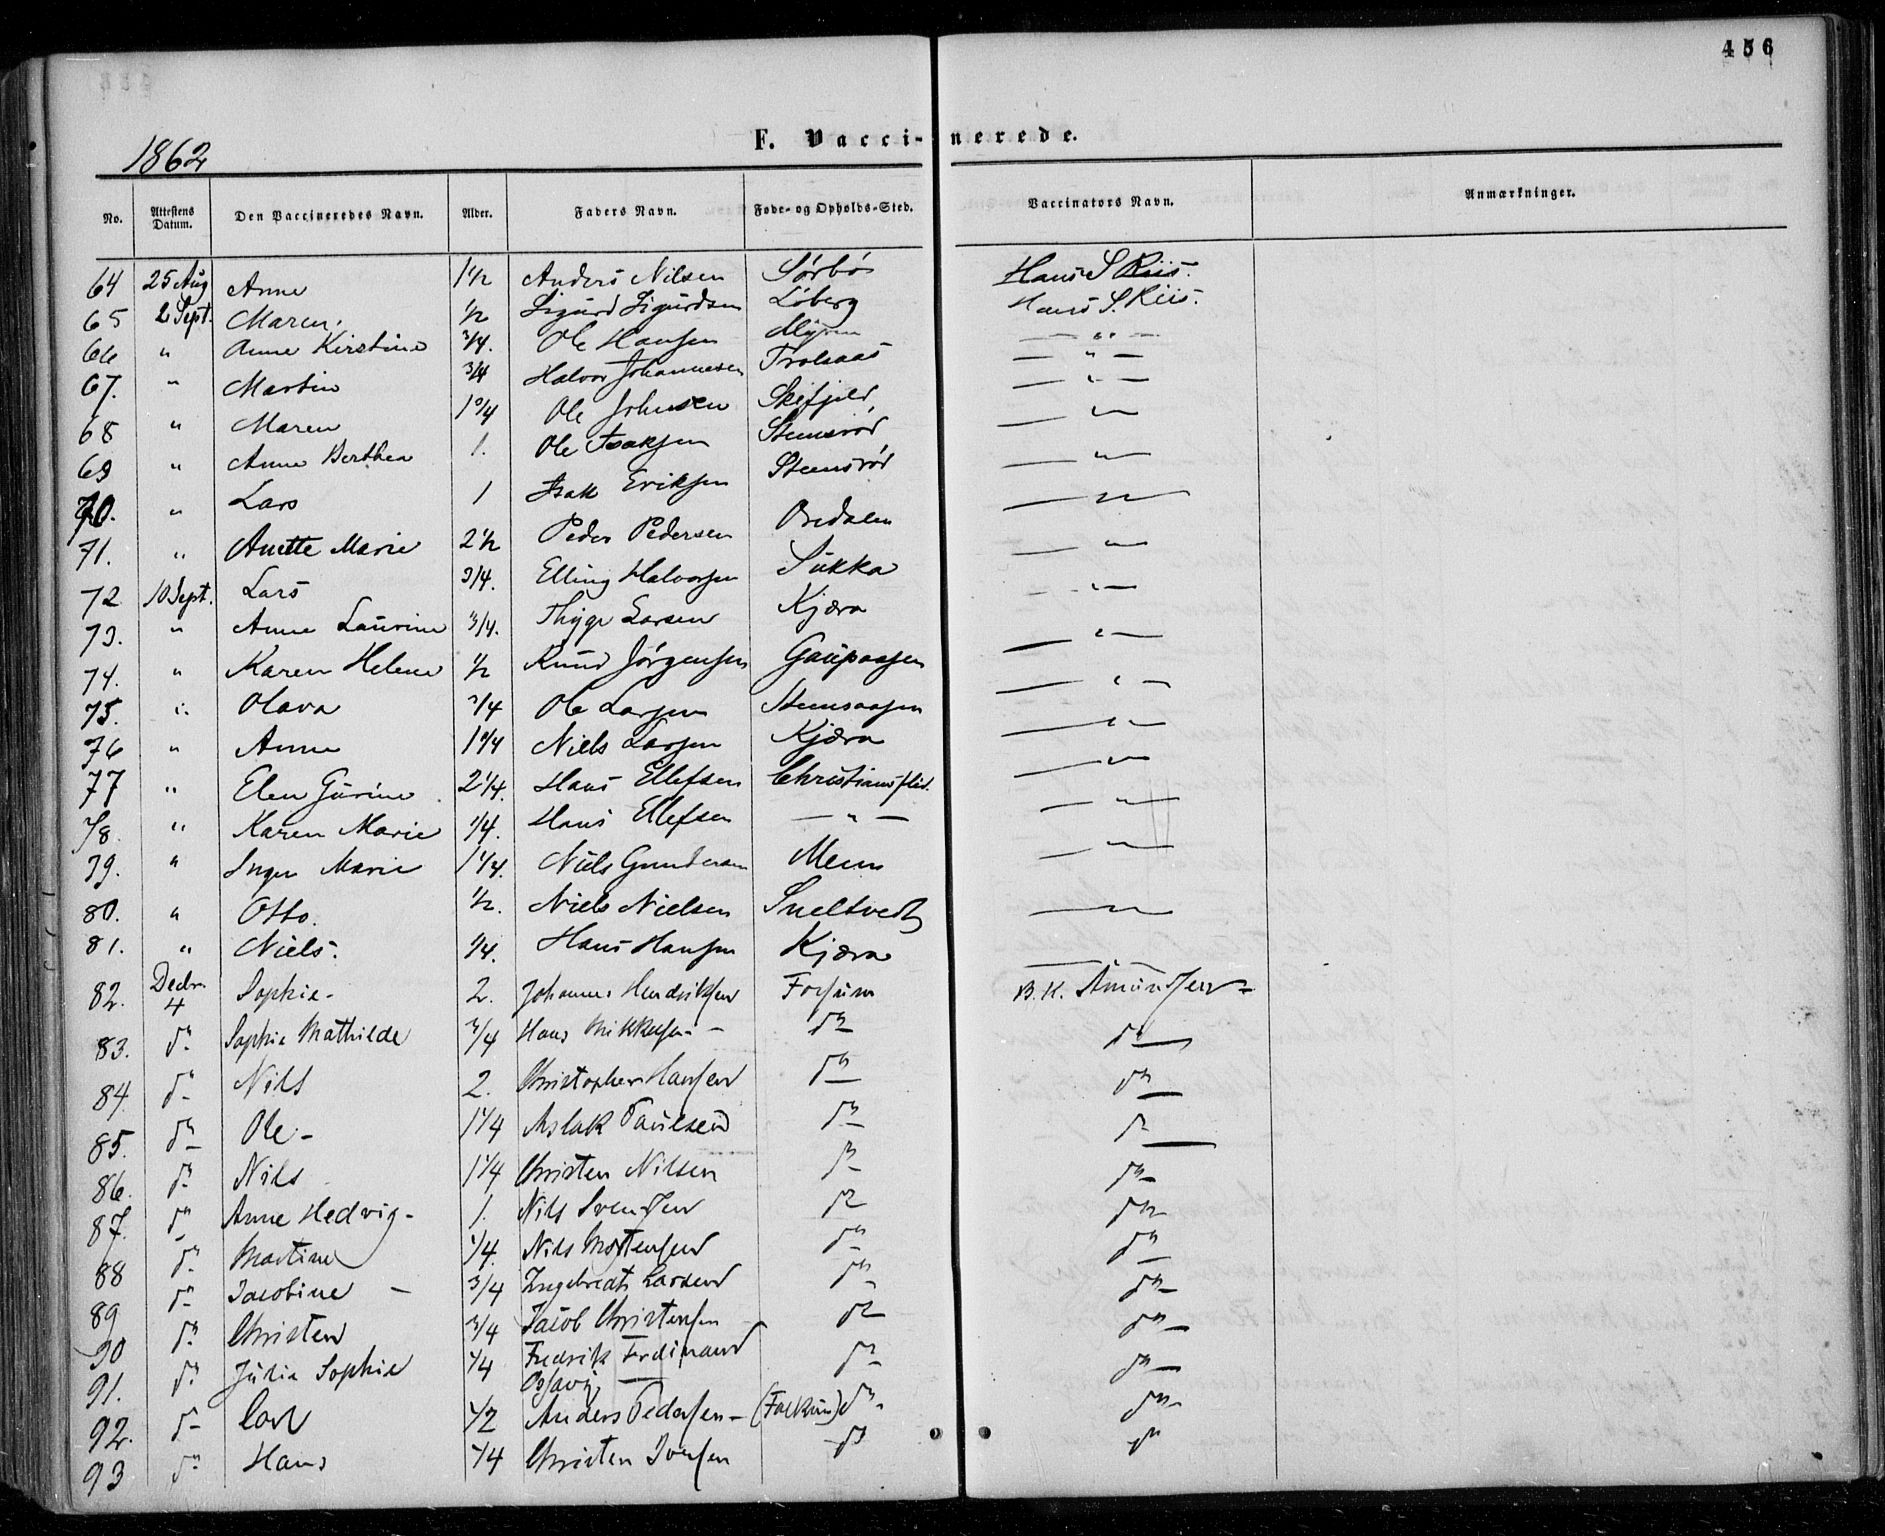 456
1862
F. Vaccinerede.
No. Attestens Datum. Den Vaccineredes Navn. Alder. Faders Navn. Føde- og Opholds-Sted. Vaccinators Navn. Anmærkninger.
64 25 Aug Anne 1 1/2 Anders Nilsen Sörbö Hans S. Riis.
65 2 Sept. Maren. 1/2 Sigurd Sigurdsen Löberg Hans S. Riis.
66 " Anne Kirstine 3/4. Ole Hansen Myren — " —
67. " Martin 3/4 Halvor Johannesen Trolsaas — " —
68 " Maren 1 3/4 Ole Johnsen Skifjeld — " —
69 " Anne Berthea 1. Ole Isaksen Steensröd — " —
70. " Lars 1 Isak Eriksen Steensröd — " —
71. " Anette Marie 2 1/2 Peder Pedersen Bredalen — " —
72 10 Sept. Lars 3/4. Elling Halvorsen Sükka — " —
73. " Anne Laurine 3/4. Thyge Larsen Kjæra — " —
74. " Karen Helene 1/2 Knud Jörgensen Gaupaasen — " —
75. " Olava 3/4 Ole Larsen Steensaasen — " —
76 " Anne 1 3/4 Niels Larsen Kjæra — " —
77 " Elen Gurine 2 1/4. Hans Ellefsen Christiansslid. — " —
78. " Karen Marie 1/4. Hans Ellefsen — " — — " —
79. " Inger Marie 1 1/4. Niels Gundersen Meen — " —
80. " Otto. 1/2. Niels Nielsen Sneltvedt — " —
81. " Niels. 1/4. Hans Hansen Kjæra — " —
82. Decbr. 4 Sophie- 2. Johannes Hendriksen Fossum B. H. Amundsen-
83. do Sophie Mathilde 3/4 Hans Mikkelsen - do do
84. do Nils 2. Christopher Hansen do do
85. do Ole - 1 1/4 Aslak Paulsen do do
86. do Nils 1 1/4 Christen Nilsen do do
87. do Anne Hedvig - 1. Nils Svendsen do do
88 do Martine 1/4. Nils Mortensen do do
89 do Jacobine - 3/4 Ingebredt Larsen do do
90 do Christen 3/4 Jacob Christensen do do
91. do Julie Sophie 1/4 Fredrik Ferdinand do do
92. do Carl 1/2 Anders Pedersen - do do
93 do Hans 1/4 Christen Iversen do do